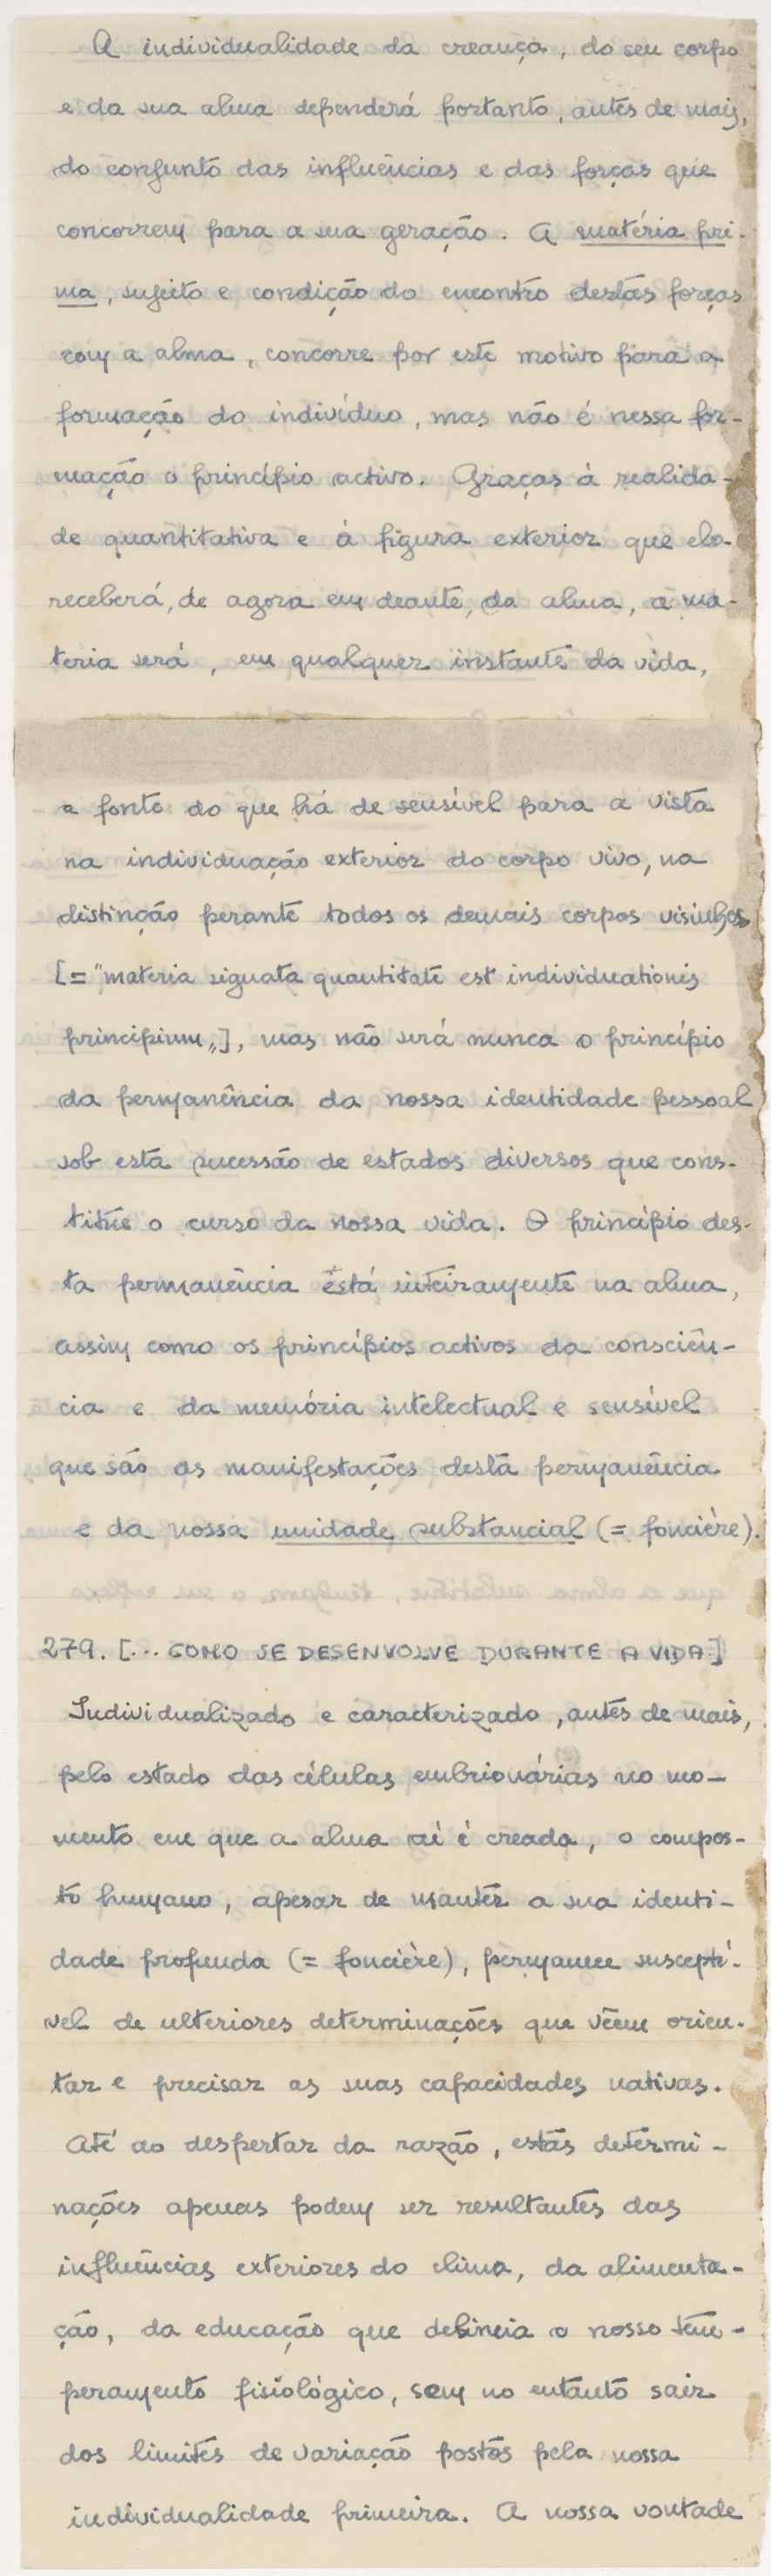 A individualidade da creança, do seu corpo
e da sua alma dependerá portanto, antes de mais,
do conjunto das influências e das forças que
concorrem para a sua geração. A matéria pri-
ma, sujeito e condição do encontro destas forças
com a alma, concorre por este motivo para a
formação do indivíduo, mas não é nessa for-
mação o princípio activo. Graças à realida-
de quantitativa e à figura exterior que ela
receberá, de agora em deante, da alma, a ma-
teria será, em qualquer instante da vida,
a fonte do que há de sensível para a vista
na individuação exterior do corpo vivo, na
distinção perante todos os demais corpos visinhos
[= "materia signata quantitate est individuationis
principium"], mas não será nunca o princípio
da permanência da nossa identidade pessoal
sob esta sucessão de estados diversos que cons-
titúe o curso da nossa vida. O princípio des-
ta permanência está inteiramente na alma,
assim como os princípios activos da consciên-
cia e da memória intelectual e sensível
que são as manifestações desta permanência
e da nossa unidade substancial (= foncière).
279. [... COMO SE DESENVOLVE DURANTE A VIDA]
Individualizado e caracterizado, antes de mais,
pelo estado das células embrionárias no mo-
mento em que a alma aí é creada, o compos-
to humano, apesar de manter a sua identi-
dade profunda (= foncière), permanece susceptí-
vel de ulteriores determinações que vêem orien-
tar e precisar as suas capacidades nativas.
Até ao despertar da razão, estas determi-
nações apenas podem ser resultantes das
influências exteriores do clima, da alimenta-
ção, da educação que delineia o nosso tem-
peramento fisiológico, sem no entanto sair
dos limites de variação postos pela nossa
individualidade primeira. A nossa vontade